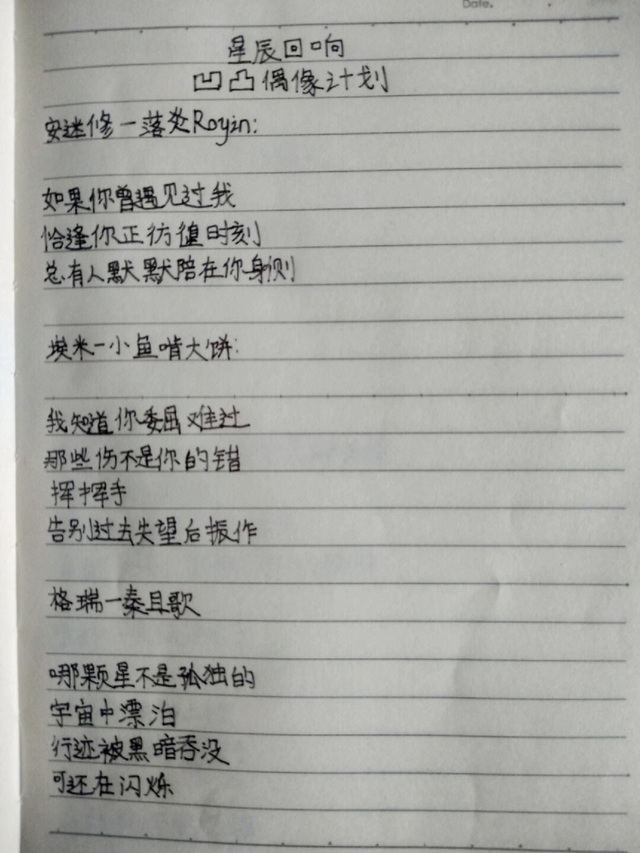 Date.
星辰回响
凹凸偶像计划
安迷修一落处Royin:
如果你曾遇见过我
恰逢你正彷徨时刻
总有人默默陪在你身侧
埃米一小鱼啃大饼:
我知道你委屈难过
那些伤不是你的错
挥挥手
告别过去失望后振作
格瑞一秦且歌
哪颗星不是孤独的
宇宙中漂泊
行迹被黑暗吞没
可还在闪烁